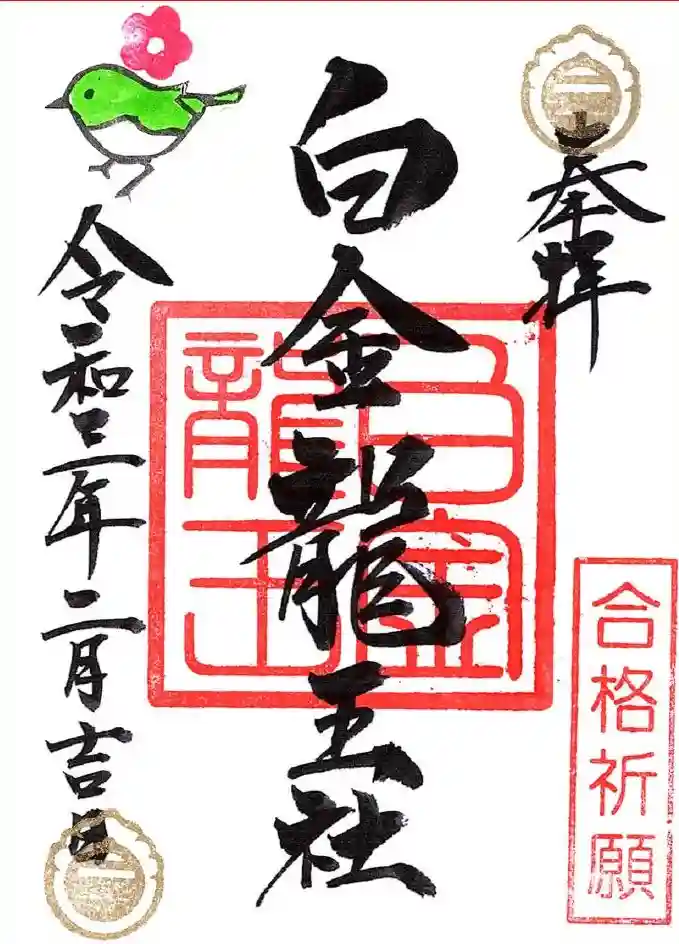 奉拝
合格祈願
白金龍王社
白金
龍王
令和三年二月吉日